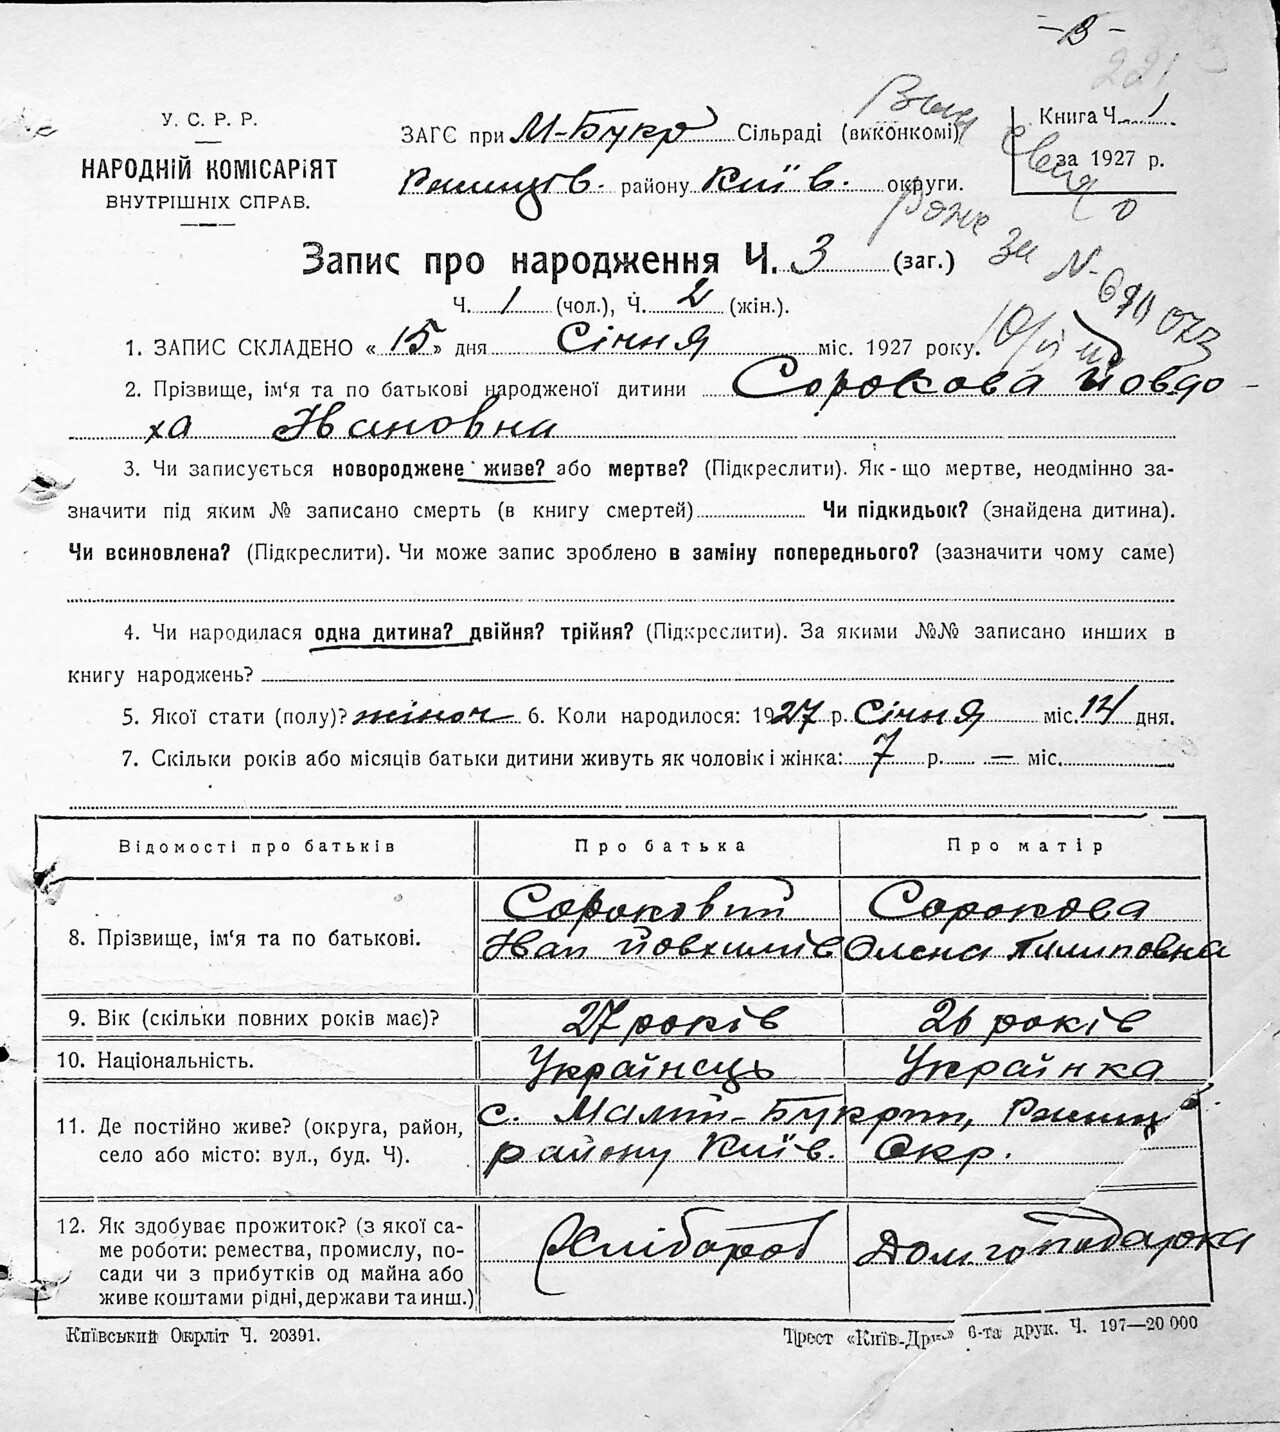 – 3 –
221
У. С. Р. Р.
НАРОДНІЙ КОМІСАРІЯТ
ВНУТРІШНІХ СПРАВ.
ЗАГС при М-Букр Сільраді (виконкомі)
Ржищов. району Київ. округи.
Книга Ч. 1
за 1927 р.
Запис про народження Ч. 3 (заг.)
Ч. 1 (чол.), Ч. 2 (жін.).
за N-
1. ЗАПИС СКЛАДЕНО « 15 » дня Січня міс. 1927 року.
2. Прізвище, ім‘я та по батькові народженої дитини Сорокова Йовдо-
ха Івановна
3. Чи записується новороджене живе? або мертве? (Підкреслити). Як-що мертве, неодмінно за-
значити під яким № записано смерть (в книгу смертей) Чи підкидьок? (знайдена дитина).
Чи всиновлена? (Підкреслити). Чи може запис зроблено в заміну попереднього? (зазначити чому саме)
4. Чи народилася одна дитина? двійня? трійня? (Підкреслити). За якими №№ записано инших в
книгу народжень?
5. Якої стати (полу)? жіноч 6. Коли народилося: 1927 р. Січня міс. 14 дня.
7. Скільки років або місяців батьки дитини живуть як чоловік і жінка: 7 р. — міс.
Відомості про батьків Про батька Про матір
8. Прізвище, ім‘я та по батькові. Сороковий Сорокова
Іван Йовхимів Олена Пилиповна
9. Вік (скільки повних років має)? 27 років 26 років
10. Національність. Українець Українка
11. Де постійно живе? (округа, район, с. Малий-Букрин, Ржищ
село або місто: вул., буд. Ч). району Київ. Окр.
12. Як здобуває прожиток? (з якої са-
ме роботи: ремества, промислу, по- Хлібороб Домгоподарка
сади чи з прибутків од майна або
живе коштами рідні, держави та инш.)
Київський Окрліт Ч. 20391.
Трест «Київ-Друк» 6-та друк. Ч. 197—20 000